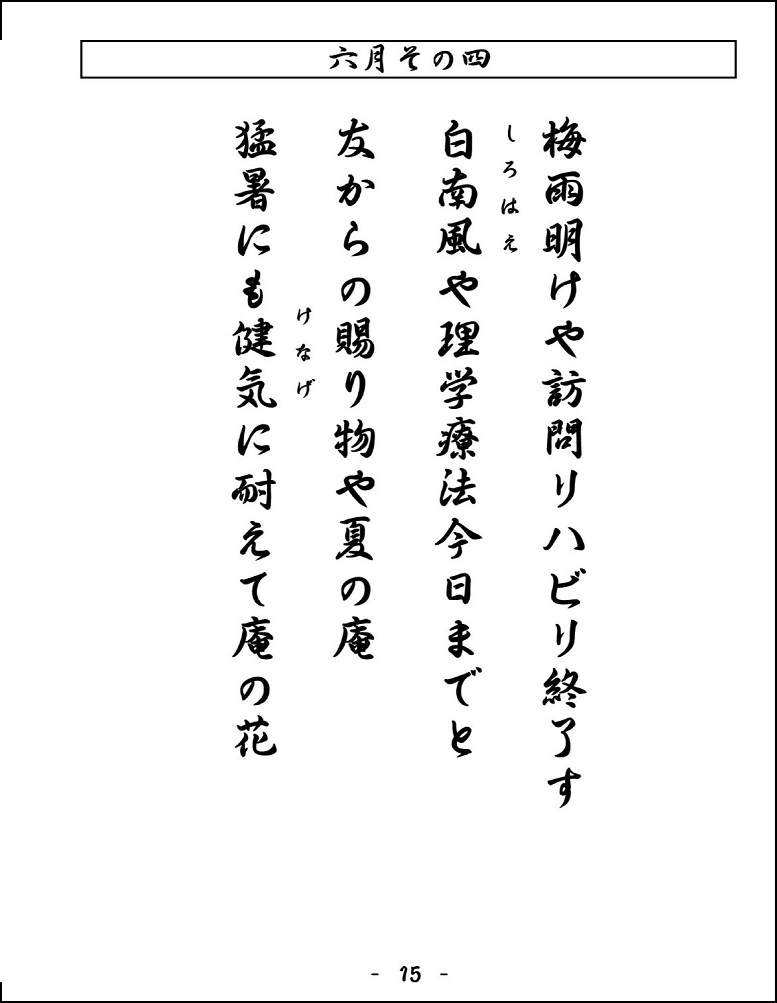 六月その四
梅雨明けや訪問リハビリ終了す
しろはえ
白南風や理学療法今日までと
友からの賜り物や夏の庵
けなげ
猛暑にも健気に耐えて庵の花
- 15 -